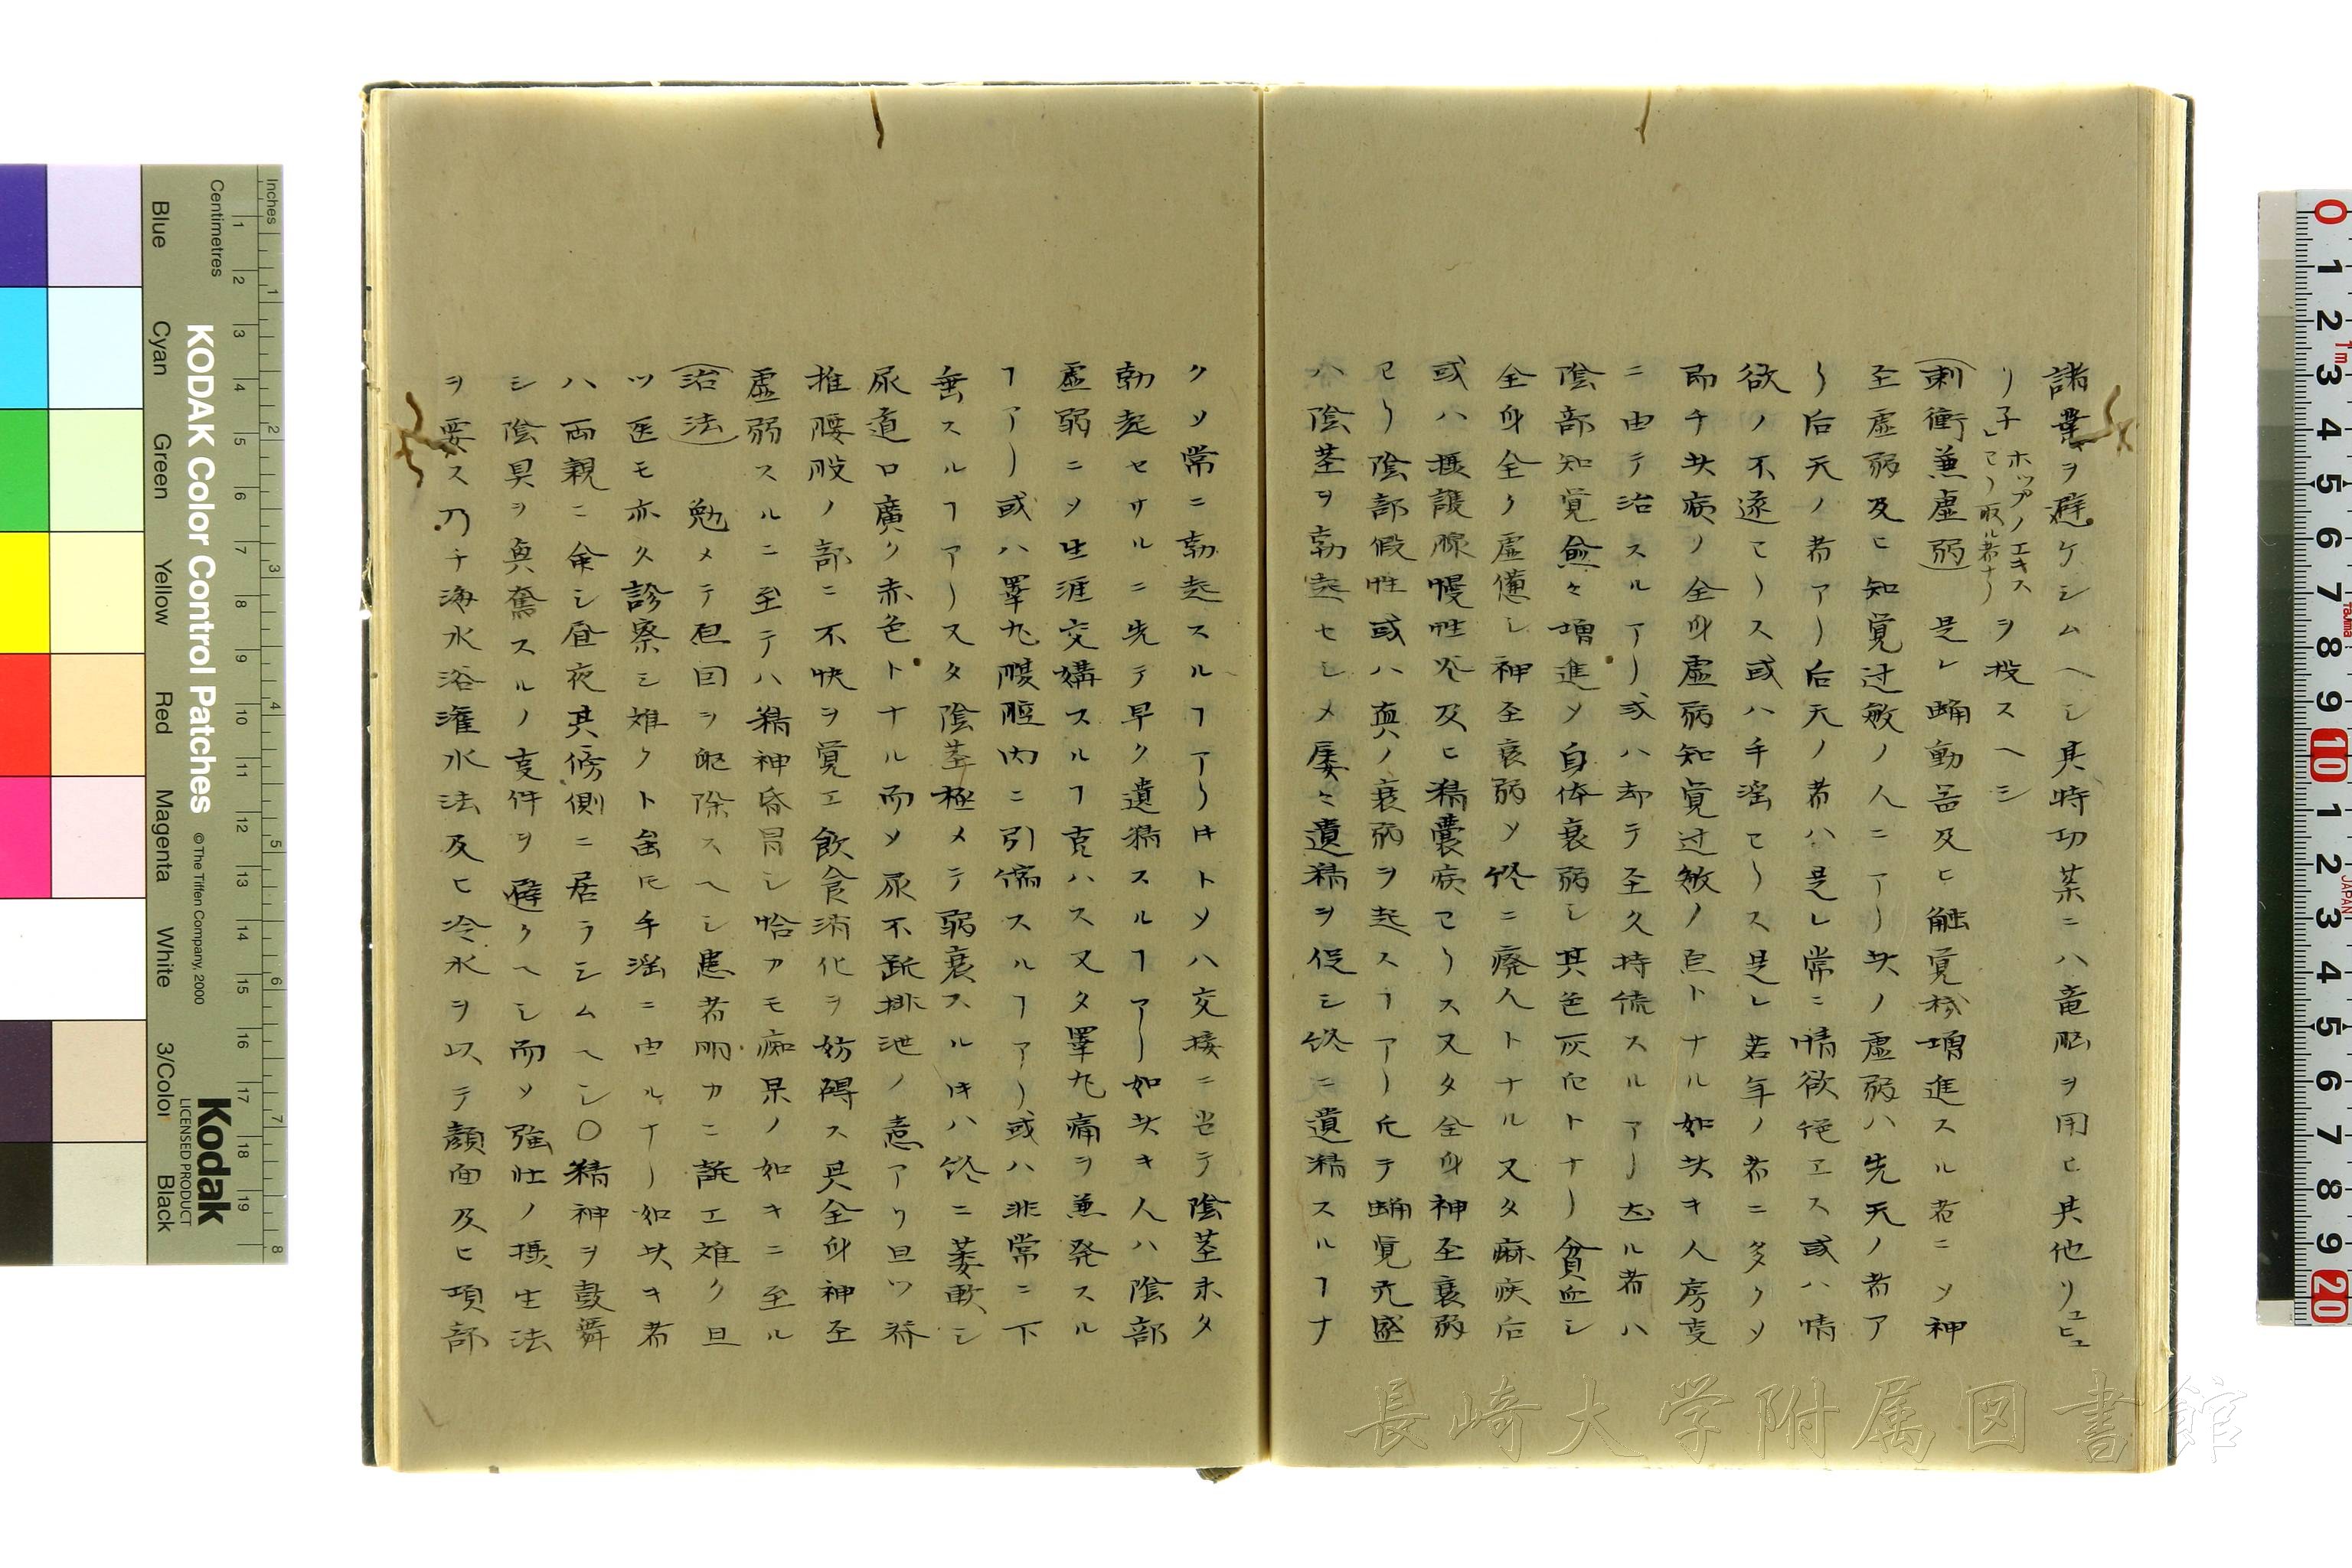 諸業ヲ避ケシムヘシ其時功薬ニハ竜脳ヲ用ヒ其他リュヒュ
リ子」ホップノエキスヨリ取ル者ナリヲ投スヘシ
(刺衝兼虚弱) 是レ蝡動器及ヒ触覚機増進スル者ニシテ神
至虚弱及ヒ知覚过敏ノ人ニアリ此ノ虚弱ハ先天ノ者ア
リ后天ノ者アリ后天ノ者ハ是レ常ニ情欲絶エス或ハ情
欲ノ不遂ヨリス或ハ手淫ヨリス是レ若年ノ者ニ多クシテ
即チ此病ノ全身虚弱知覚过敏ノ原トナル如此キ人房事
ニ由テ治スルアリ或ハ却テ至久持続スルアリ甚ル者ハ
陰部知覚愈々増進シテ自体衰弱シ其色灰白トナリ貧血シ
全身全ク虚憊シ神至衰弱シテ終ニ廃人トナル又タ麻疾后
或ハ摂護腺慢性炎及ヒ精嚢病ヨリス又タ全身神至衰弱
ヨリ陰部假性或ハ真ノ衰弱ヲ起スヿアリ凡テ蝡覚亢盛
ハ陰茎ヲ勃起セシメ屡々遺精ヲ促シ終ニ遺精スルヿナ
クシテ常ニ勃起スルヿアリ時トシテハ交接ニ当テ陰茎未タ
勃起セサルニ先テ早ク遺精スルヿアリ如此キ人ハ陰部
虚弱ニシテ生涯交媾スルヿ克ハス又タ睾丸痛ヲ兼発スル
ヿアリ或ハ睾丸腹腔内ニ引縮スルヿアリ或ハ非常ニ下
垂スルヿアリ又タ陰茎極メテ弱衰スル時ハ終ニ萎軟シ
尿道口廣ク赤色トナル而シテ尿不断排泄ノ意アリ且ツ荐
推腰股ノ部ニ不快ヲ覚エ飲食消化ヲ妨碍ス其全身神至
虚弱スルニ至テハ精神昏冒シ恰カモ痴呆ノ如キニ至ル
(治法) 勉メテ原因ヲ駆除スヘシ患者明カニ訴エ難ク且
ツ医モ亦久診察シ難クト雖𪜈手淫ニ由ルナリ如此キ者
ハ両親ニ命シ昼夜其傍側ニ居ラシムヘシ〇精神ヲ鼓舞
シ陰具ヲ興奮スルノ事件ヲ避クヘシ而シテ強壮ノ摂生法
ヲ要ス乃チ海水浴灌水法及ヒ冷水ヲ以テ顔面及ヒ項部
KODAK Color Control Patches
© The Tiffen Company, 2000
Kodak
LICENSED PRODUCT
Inches
Centimetres
Blue
Cyan
Green
Yellow
Red
Magenta
White
3/Color
Black
長崎大学附属図書館